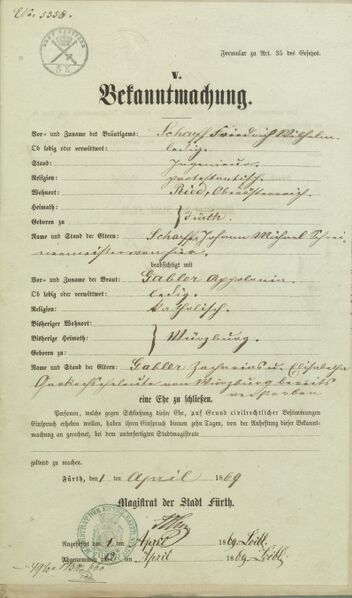 No. 5358.
Formular zu Art. 35 des Gesetzes.
V.
Bekanntmachung.
Vor- und Zuname des Bräutigams: Scharff Friedrich Wilhelm.
Ob ledig oder verwittwet: ledig.
Stand: Ingenieur.
Religion: protestantisch.
Wohnort: Ried, Oberösterreich.
Heimath:
Geboren zu } Fürth.
Name und Stand der Eltern: Scharff, Johann Michael Schrei-
nermeister von hier.
beabsichtigt mit
Vor- und Zuname der Braut: Gabler Appolonia.
Ob ledig oder verwittwet: ledig.
Religion: katholisch.
Bisheriger Wohnort:
Bisherige Heimath: } Würzburg.
Geboren zu:
Name und Stand der Eltern: Gabler Zacharias u. Elisabetha
von Würzburg bereits
verstorben
eine Ehe zu schließen.
Personen, welche gegen Schließung dieser Ehe, auf Grund civilrechtlicher Bestimmungen
Einspruch erheben wollen, haben ihren Einspruch binnen zehn Tagen, von der Anheftung dieser Bekannt-
machung an gerechnet, bei dem unterfertigten Stadtmagistrate
geltend zu machen.
Fürth, den 1 ten April 1869
Magistrat der Stadt Fürth.
Angeheftet den 1 ten April 1869
Abgenommen den ten April 1869